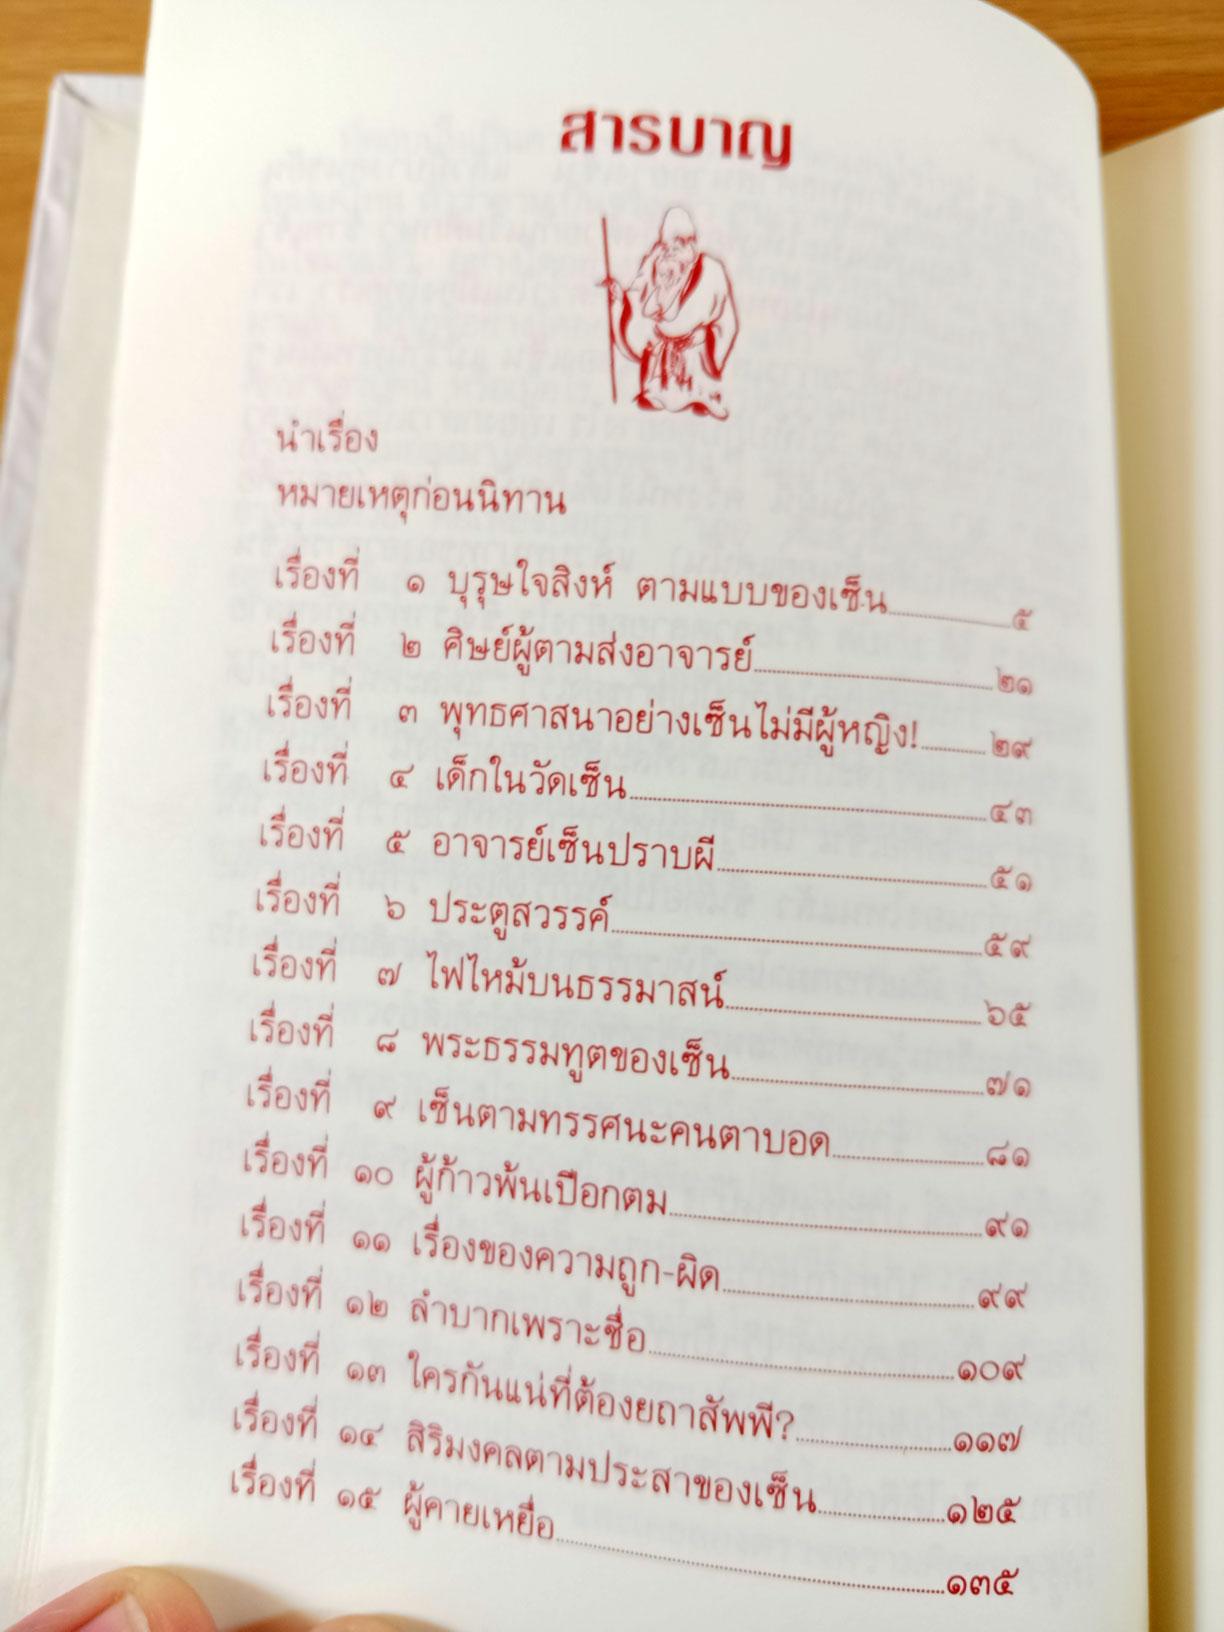 สารบาญ
นำเรื่อง
หมายเหตุก่อนนิทาน
เรื่องที่ ๑ บุรุษใจสิงห์ ตามแบบของเซ็น ๕
เรื่องที่ ๒ ศิษย์ผู้ตามส่งอาจารย์ ๒๑
เรื่องที่ ๓ พุทธศาสนาอย่างเซ็นไม่มีผู้หญิง! ๒๙
เรื่องที่ ๔ เด็กในวัดเซ็น ๔๓
เรื่องที่ ๕ อาจารย์เซ็นปราบผี ๕๑
เรื่องที่ ๖ ประตูสวรรค์ ๕๙
เรื่องที่ ๗ ไฟไหม้บนธรรมาสน์ ๖๕
เรื่องที่ ๘ พระธรรมทูตของเซ็น ๗๑
เรื่องที่ ๙ เซ็นตามทรรศนะคนตาบอด ๘๑
เรื่องที่ ๑๐ ผู้ก้าวพ้นเปือกตม ๙๑
เรื่องที่ ๑๑ เรื่องของความถูก-ผิด ๙๙
เรื่องที่ ๑๒ ลำบากเพราะชื่อ ๑๐๙
เรื่องที่ ๑๓ ใครกันแน่ที่ต้องยถาสัพพี? ๑๑๗
เรื่องที่ ๑๔ สิริมงคลตามประสาของเซ็น ๑๒๕
เรื่องที่ ๑๕ ผู้คายเหยื่อ ๑๓๕